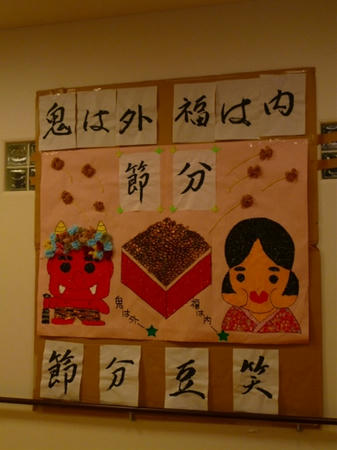 鬼は外 福は内
節分
鬼は外
福は内
節分豆笑